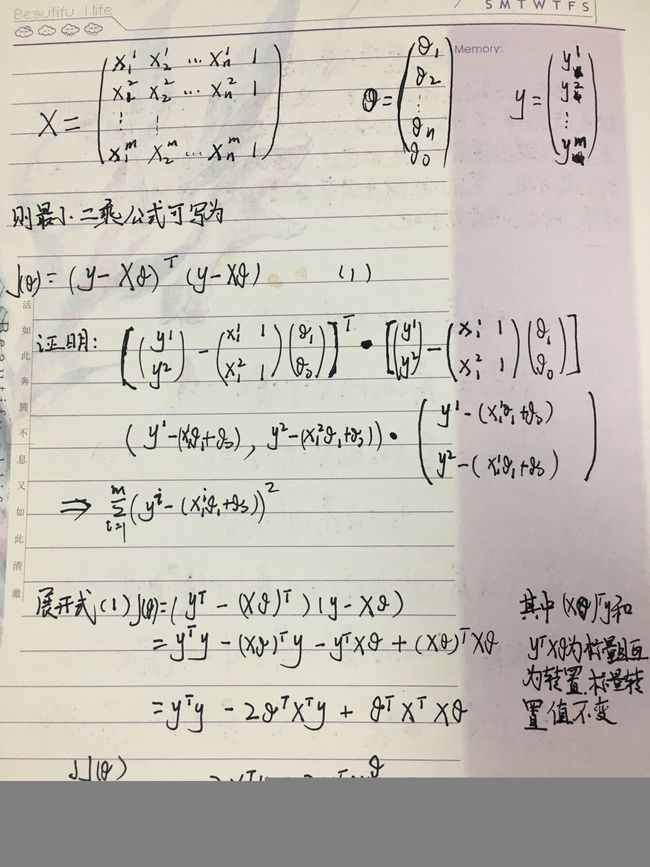 Beautiful life
S M T W T F S
Memory:
X = (x₁¹ x₂¹ ... xₙ¹ 1
x₁² x₂² ... xₙ² 1
⋮ ⋮
x₁ᵐ x₂ᵐ ... xₙᵐ 1)
θ = (θ₁
θ₂
⋮
θₙ
θ₀)
y = (y¹
y²
⋮
yᵐ)
则最小二乘公式可写为
J(θ) = (y − Xθ)ᵀ (y − Xθ) (1)
证明: [(y¹ y²) − (x₁¹ 1 x₁² 1)(θ₁ θ₀)]ᵀ • [(y¹ y²) − (x₁¹ 1 x₁² 1)(θ₁ θ₀)]
(y¹ − (x₁¹θ₁+θ₀), y² − (x₁²θ₁+θ₀)) • (y¹ − (x₁¹θ₁+θ₀) y² − (x₁²θ₁+θ₀))
⇒ Σᵢ₌₁ᵐ (yⁱ − (x₁ⁱθ₁+θ₀))²
展开式(1) J(θ) = (yᵀ − (Xθ)ᵀ)(y − Xθ)
= yᵀy − (Xθ)ᵀy − yᵀXθ + (Xθ)ᵀXθ
= yᵀy − 2θᵀXᵀy + θᵀXᵀXθ
其中(Xθ)ᵀy和
yᵀXθ为标量且互
为转置,标量转
置值不变
活如此奔腾不息又如此清澈